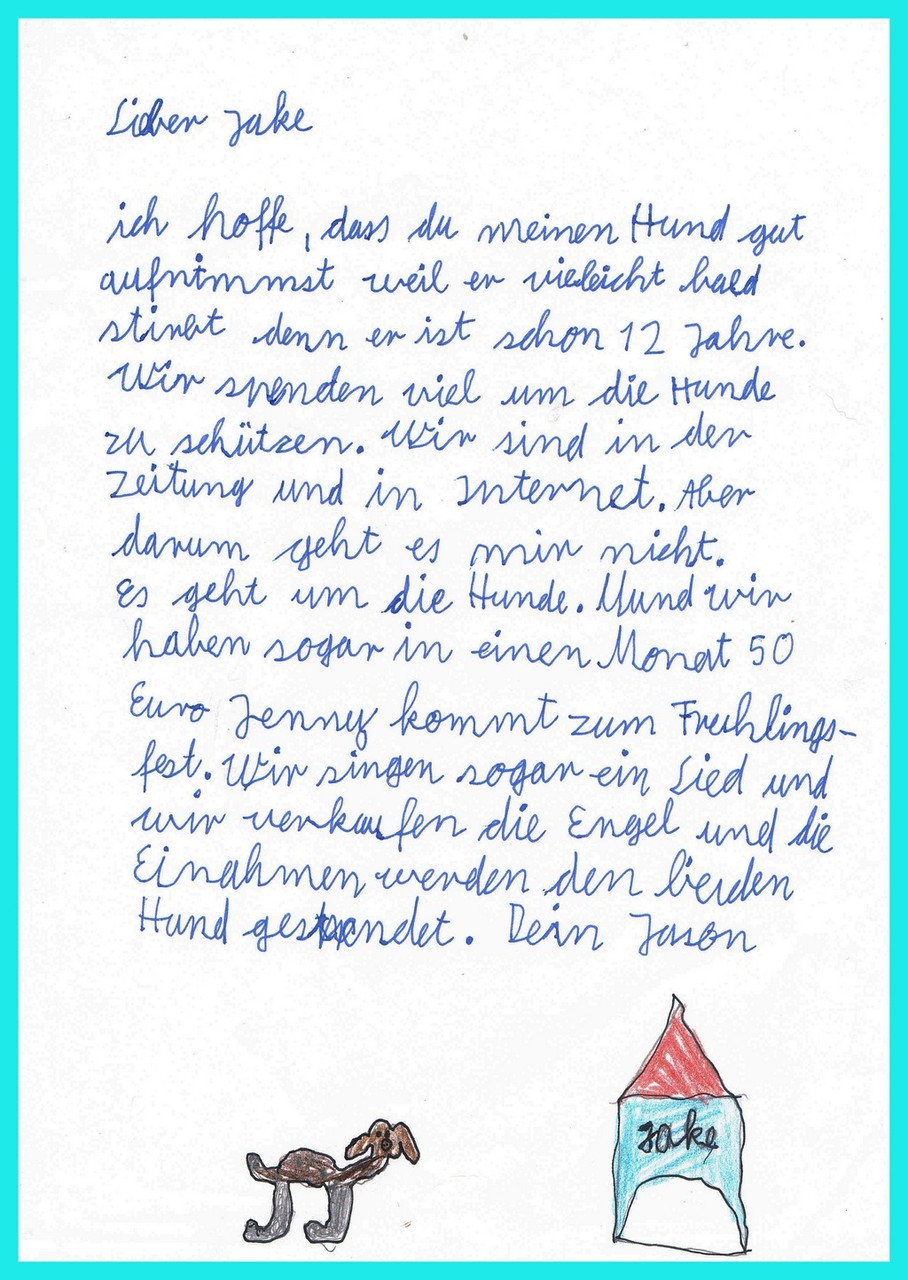 Lieber Jake
ich hoffe, dass du meinen Hund gut
aufnimmst weil er vieleicht bald
stirbt denn er ist schon 12 Jahre.
Wir spenden viel um die Hunde
zu schützen. Wir sind in der
Zeitung und in Internet. Aber
darum geht es mir nicht.
Es geht um die Hunde. Uund wir
haben sogar in einen Monat 50
Euro Jenny kommt zum Fruhlings-
fest. Wir singen sogar ein Lied und
wir verkaufen die Engel und die
Einahmen werden den beiden
Hund gespendet. Dein Jason
Jake